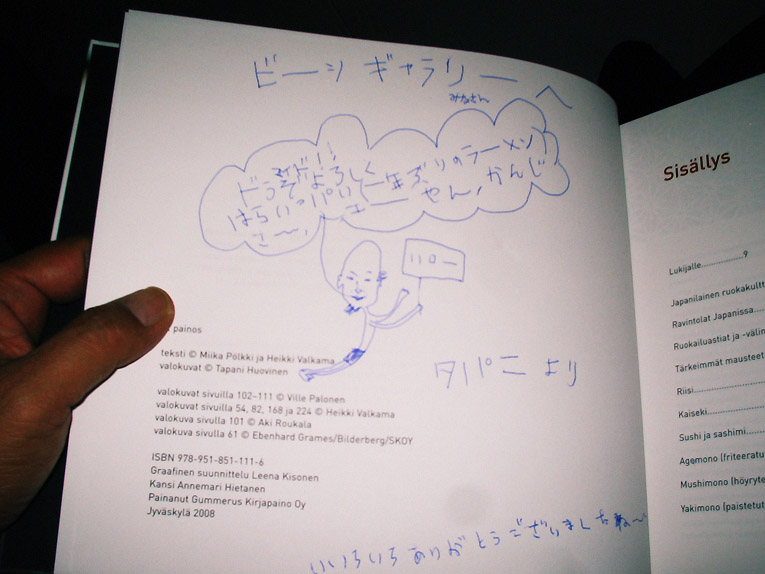 ビーン ギャラリー へ
みなさん
マイド!!
ドうぞ よろしく
はらいっぱい(一年ぶりのラーメン)
さー、エー やん、かんじ
ハロー
タパニ より
painos
teksti © Miika Pölkki ja Heikki Valkama
valokuvat © Tapani Huovinen
valokuvat sivuilla 102–111 © Ville Palonen
valokuvat sivuilla 54, 82, 168 ja 224 © Heikki Valkama
valokuva sivulla 101 © Aki Roukala
valokuva sivulla 61 © Ebenhard Grames/Bilderberg/SKOY
ISBN 978-951-851-111-6
Graafinen suunnittelu Leena Kisonen
Kansi Annemari Hietanen
Painanut Gummerus Kirjapaino Oy
Jyväskylä 2008
いろいろ ありがとうございましたね〜
Sisällys
Lukijalle..................9
Japanilainen ruokakultt
Ravintolat Japanissa
Ruokailuastiat ja -välin
Tärkeimmät mausteet
Riisi
Kaiseki
Sushi ja sashimi
Agemono (friteeratu
Mushimono (höyryte
Yakimono (paistetut